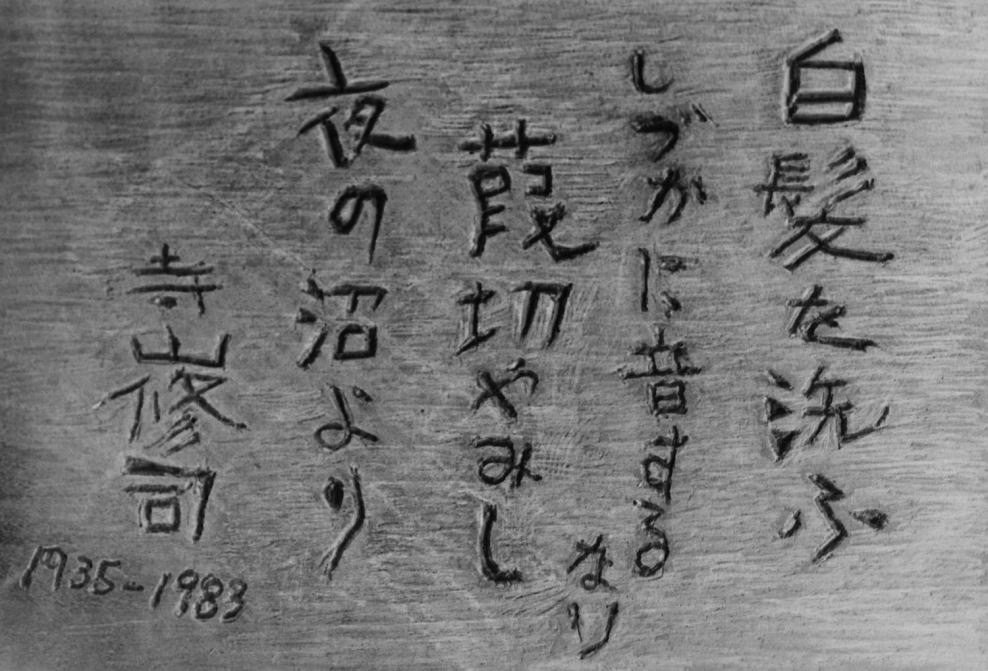 白髪を洗ふ
しづかに音する
なり
葭切やみし
夜の沼より
寺山修司
1935-1983